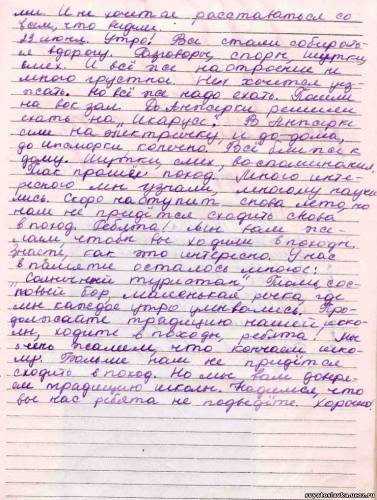 ми. И не хочется расставаться со
всем, что видели.
23 июня. Утро! Все стали собирать-
ся в дорогу. Разговоры, споры, шутки,
смех. И всё же настроение не
много грустное. Не хочется уез-
жать. Но всё же надо ехать. Пошли
на вокзал. До Ангарки решили
ехать на "Икарусе". В
сели на электричку и до дома,
до конечно. Все ближе к
дому. Шутки, смех, воспоминания.
Так прошёл поход. Много инте-
ресного мы узнали, многому научи
лись. Скоро наступит снова лето, но
нам не придётся сходить снова
в поход. Ребята! Мы вам же-
лаем, чтобы вы ходили в походы.
Знаете, как это интересно. У нас
в памяти осталось многое:
"Солнечный турист", сос-
новый бор, маленькая речка, где
мы каждое утро умывались. Про-
должайте традицию нашей шко-
лы, ходите в походы, ребята! Мы
очень жалеем, что кончаем шко-
лу. Больше нам не придётся
сходить в поход. Но мы вам доверя-
ем традицию школы. Надеемся, что
вы нас ребята не подведёте. Хорошо.
svyatoslavka.ucoz.ru